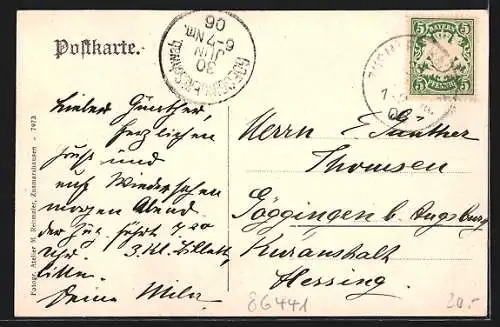 Postkarte.
GOEGGINGEN
30
JUN
6-7 Nm.
06
BAYERN
5 5
PFENNIG
Lieber Günther,
herzlichen
Gruß und
auf Wiedersehen
morgen Abend
der Zug fährt 7.20
Uhr. 3. Kl. Billett,
bitte.
Deine Mila
Herrn Günther
Thomsen
Göggingen b. Augsburg
Kuranstalt
Hessing.
Fotogr. Atelier M. Reismaler, Zusmarshausen - 7973
86441
20.-